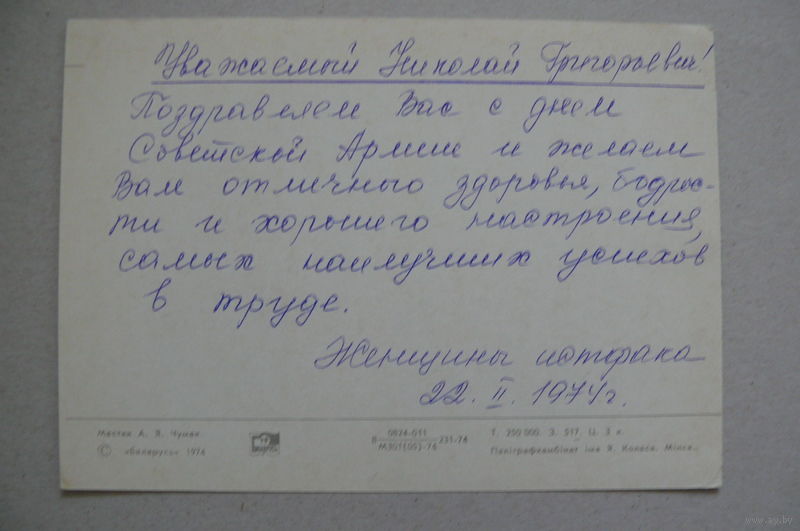 Уважаемый Николай Григорьевич!
Поздравляем Вас с днем
Советской Армии и желаем
Вам отличного здоровья, бодрос-
ти и хорошего настроения,
самых наилучших успехов
в труде.
Женщины истфака
22. II. 1974г.
Мастак А. Я. Чумак.
© «Беларусь» 1974
БЕЛАРУСЬ
В 0824-011 231-74
М301(05)-74
Т. 250 000. З. 517. Ц. 3 к.
Паліграфкамбінат імя Я. Коласа. Мінск.
www.ay.by